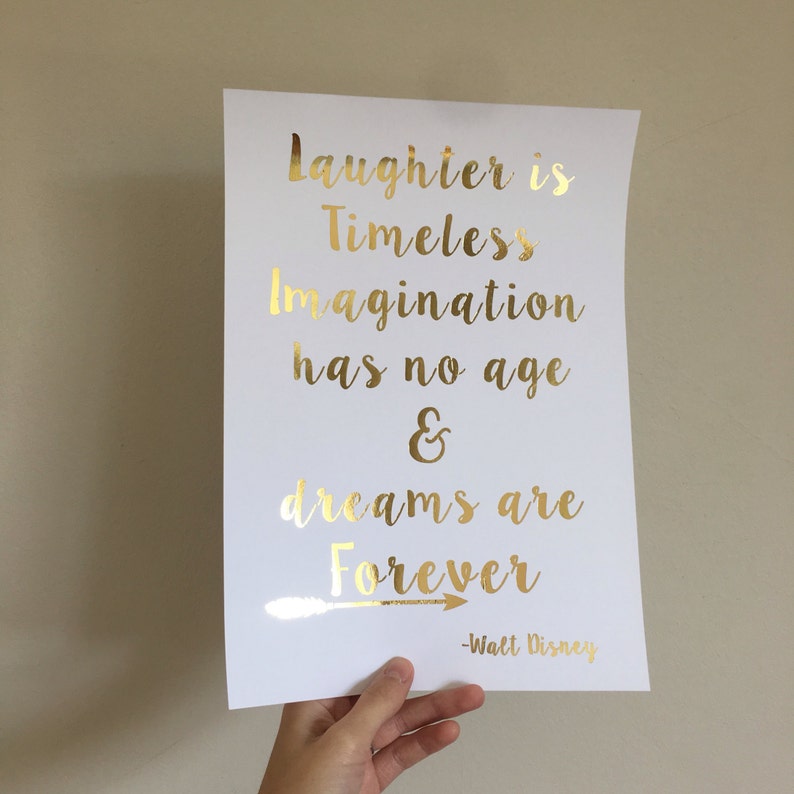 Laughter is
Timeless
Imagination
has no age
&
dreams are
Forever
-Walt Disney